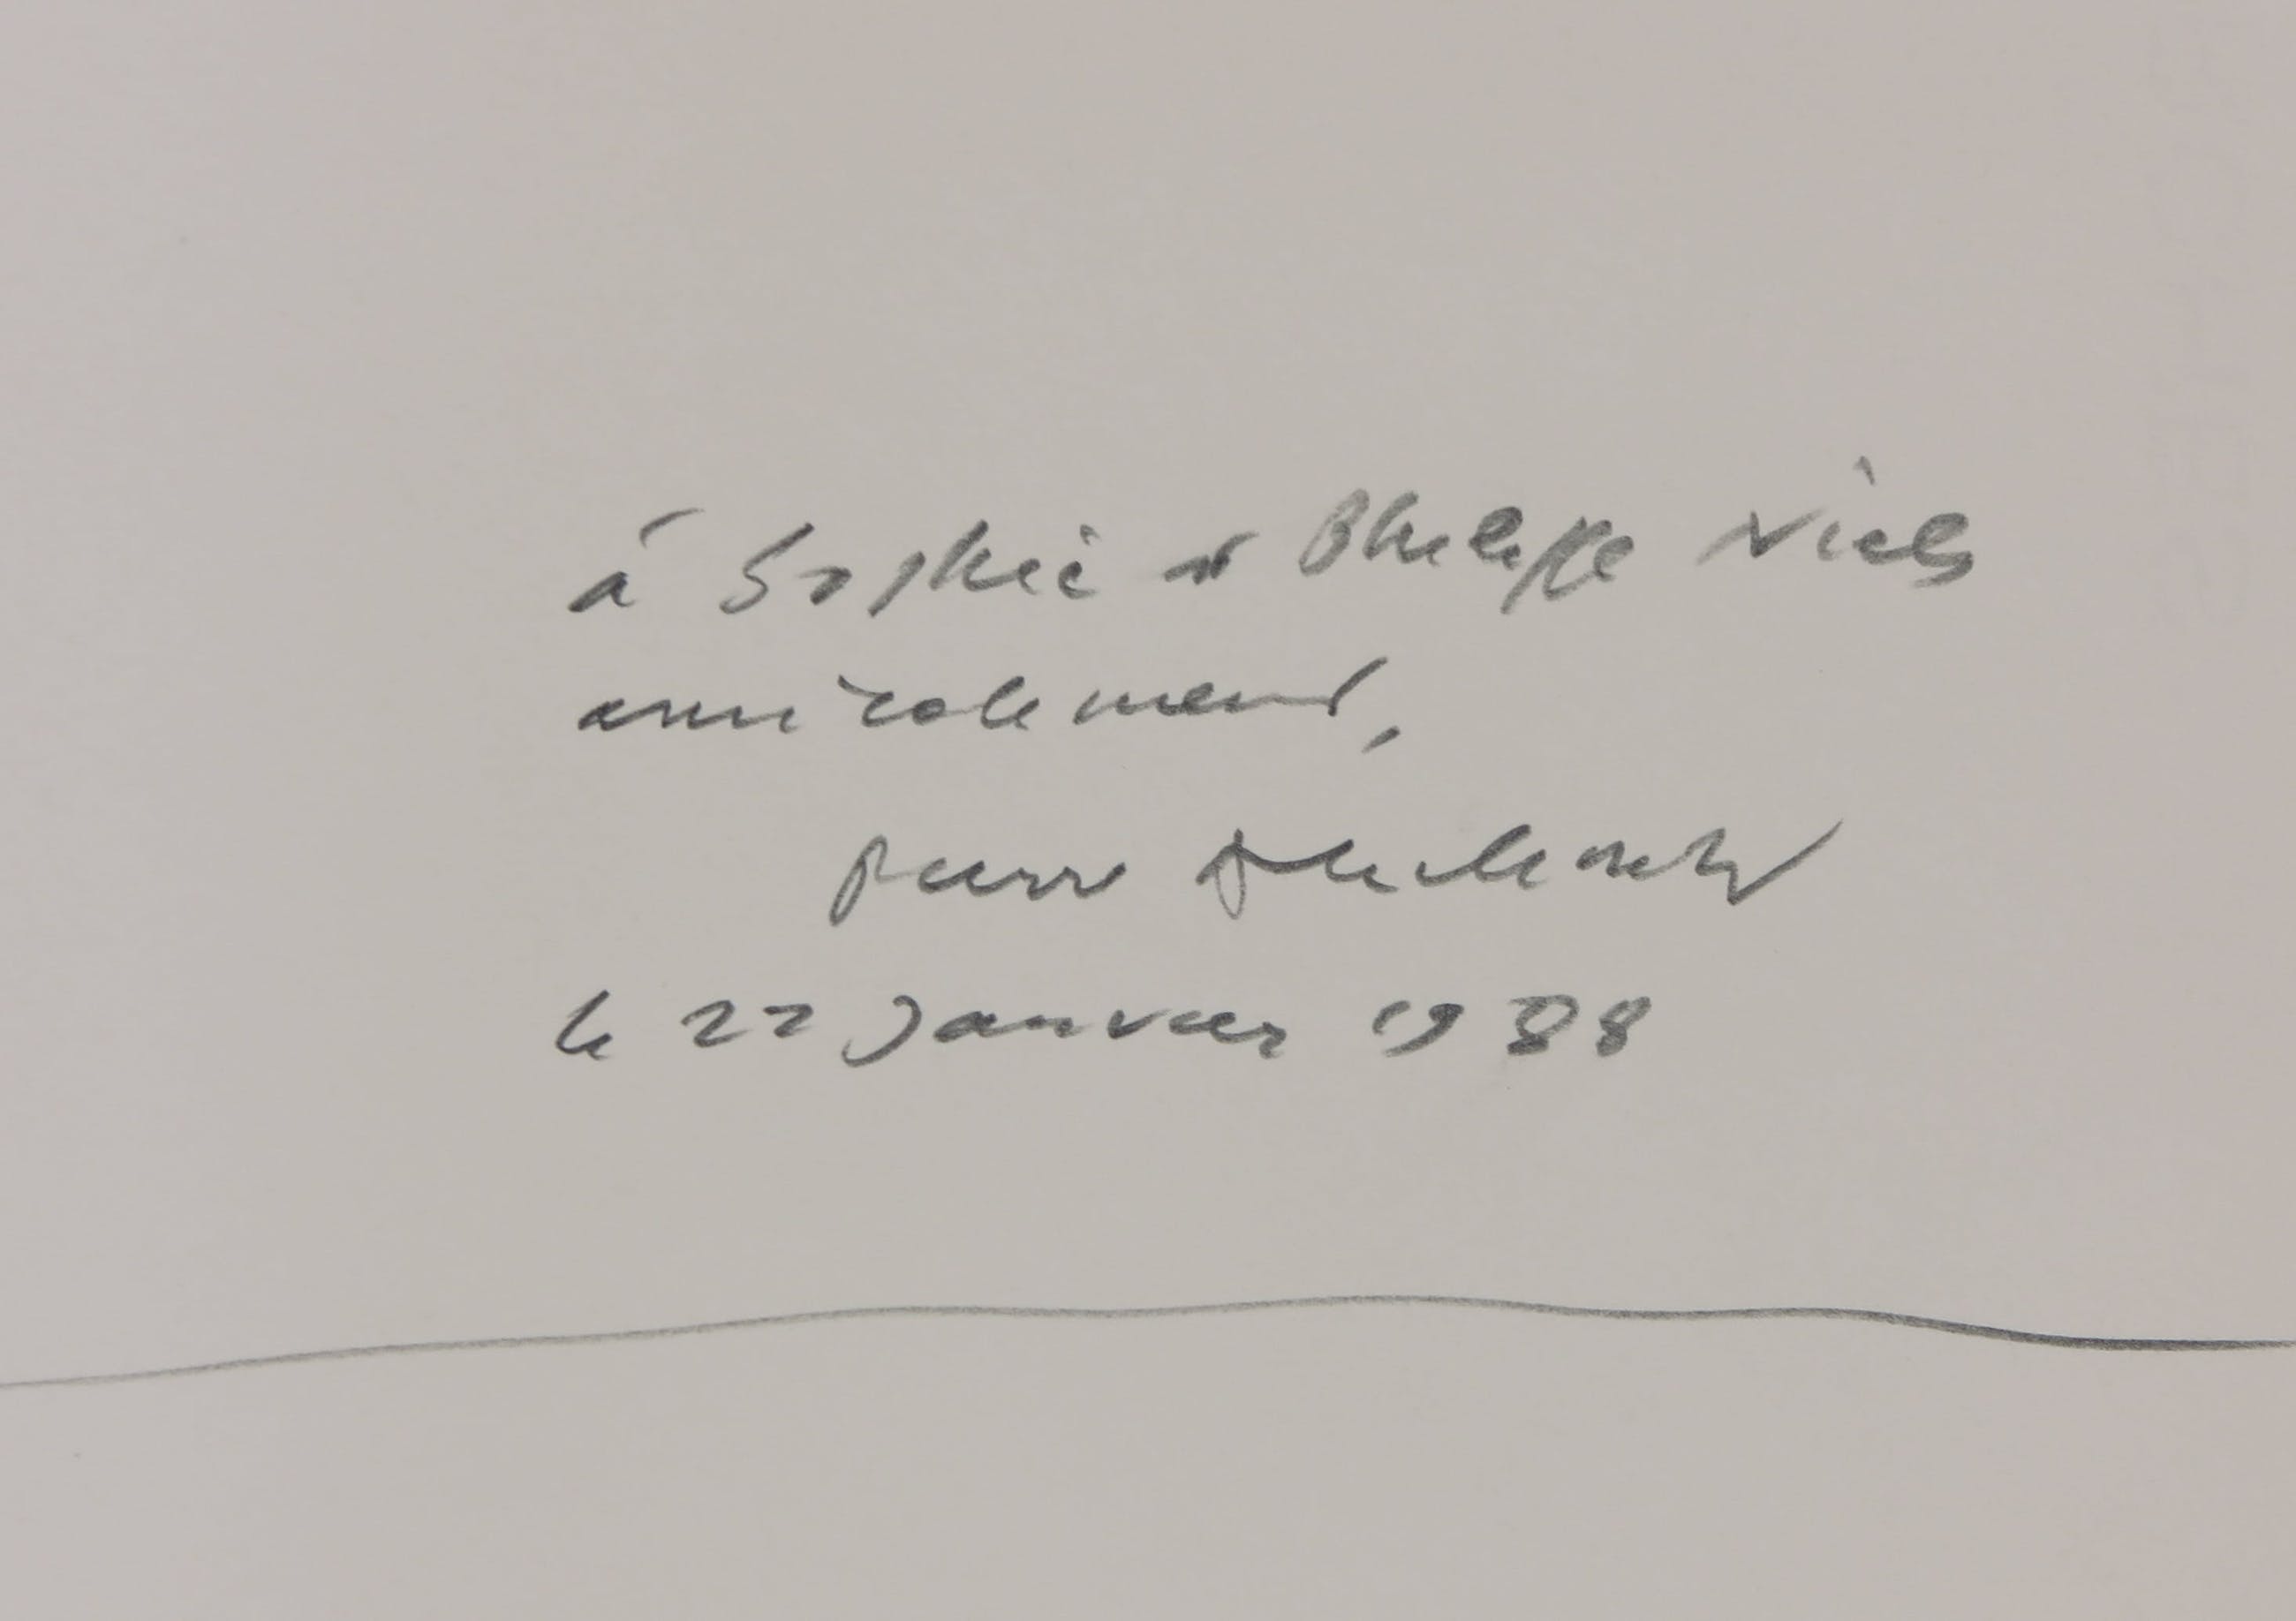 à Sophie et Philippe Niels
amicalement,
Pierre Alechinsky
le 22 Janvier 1988